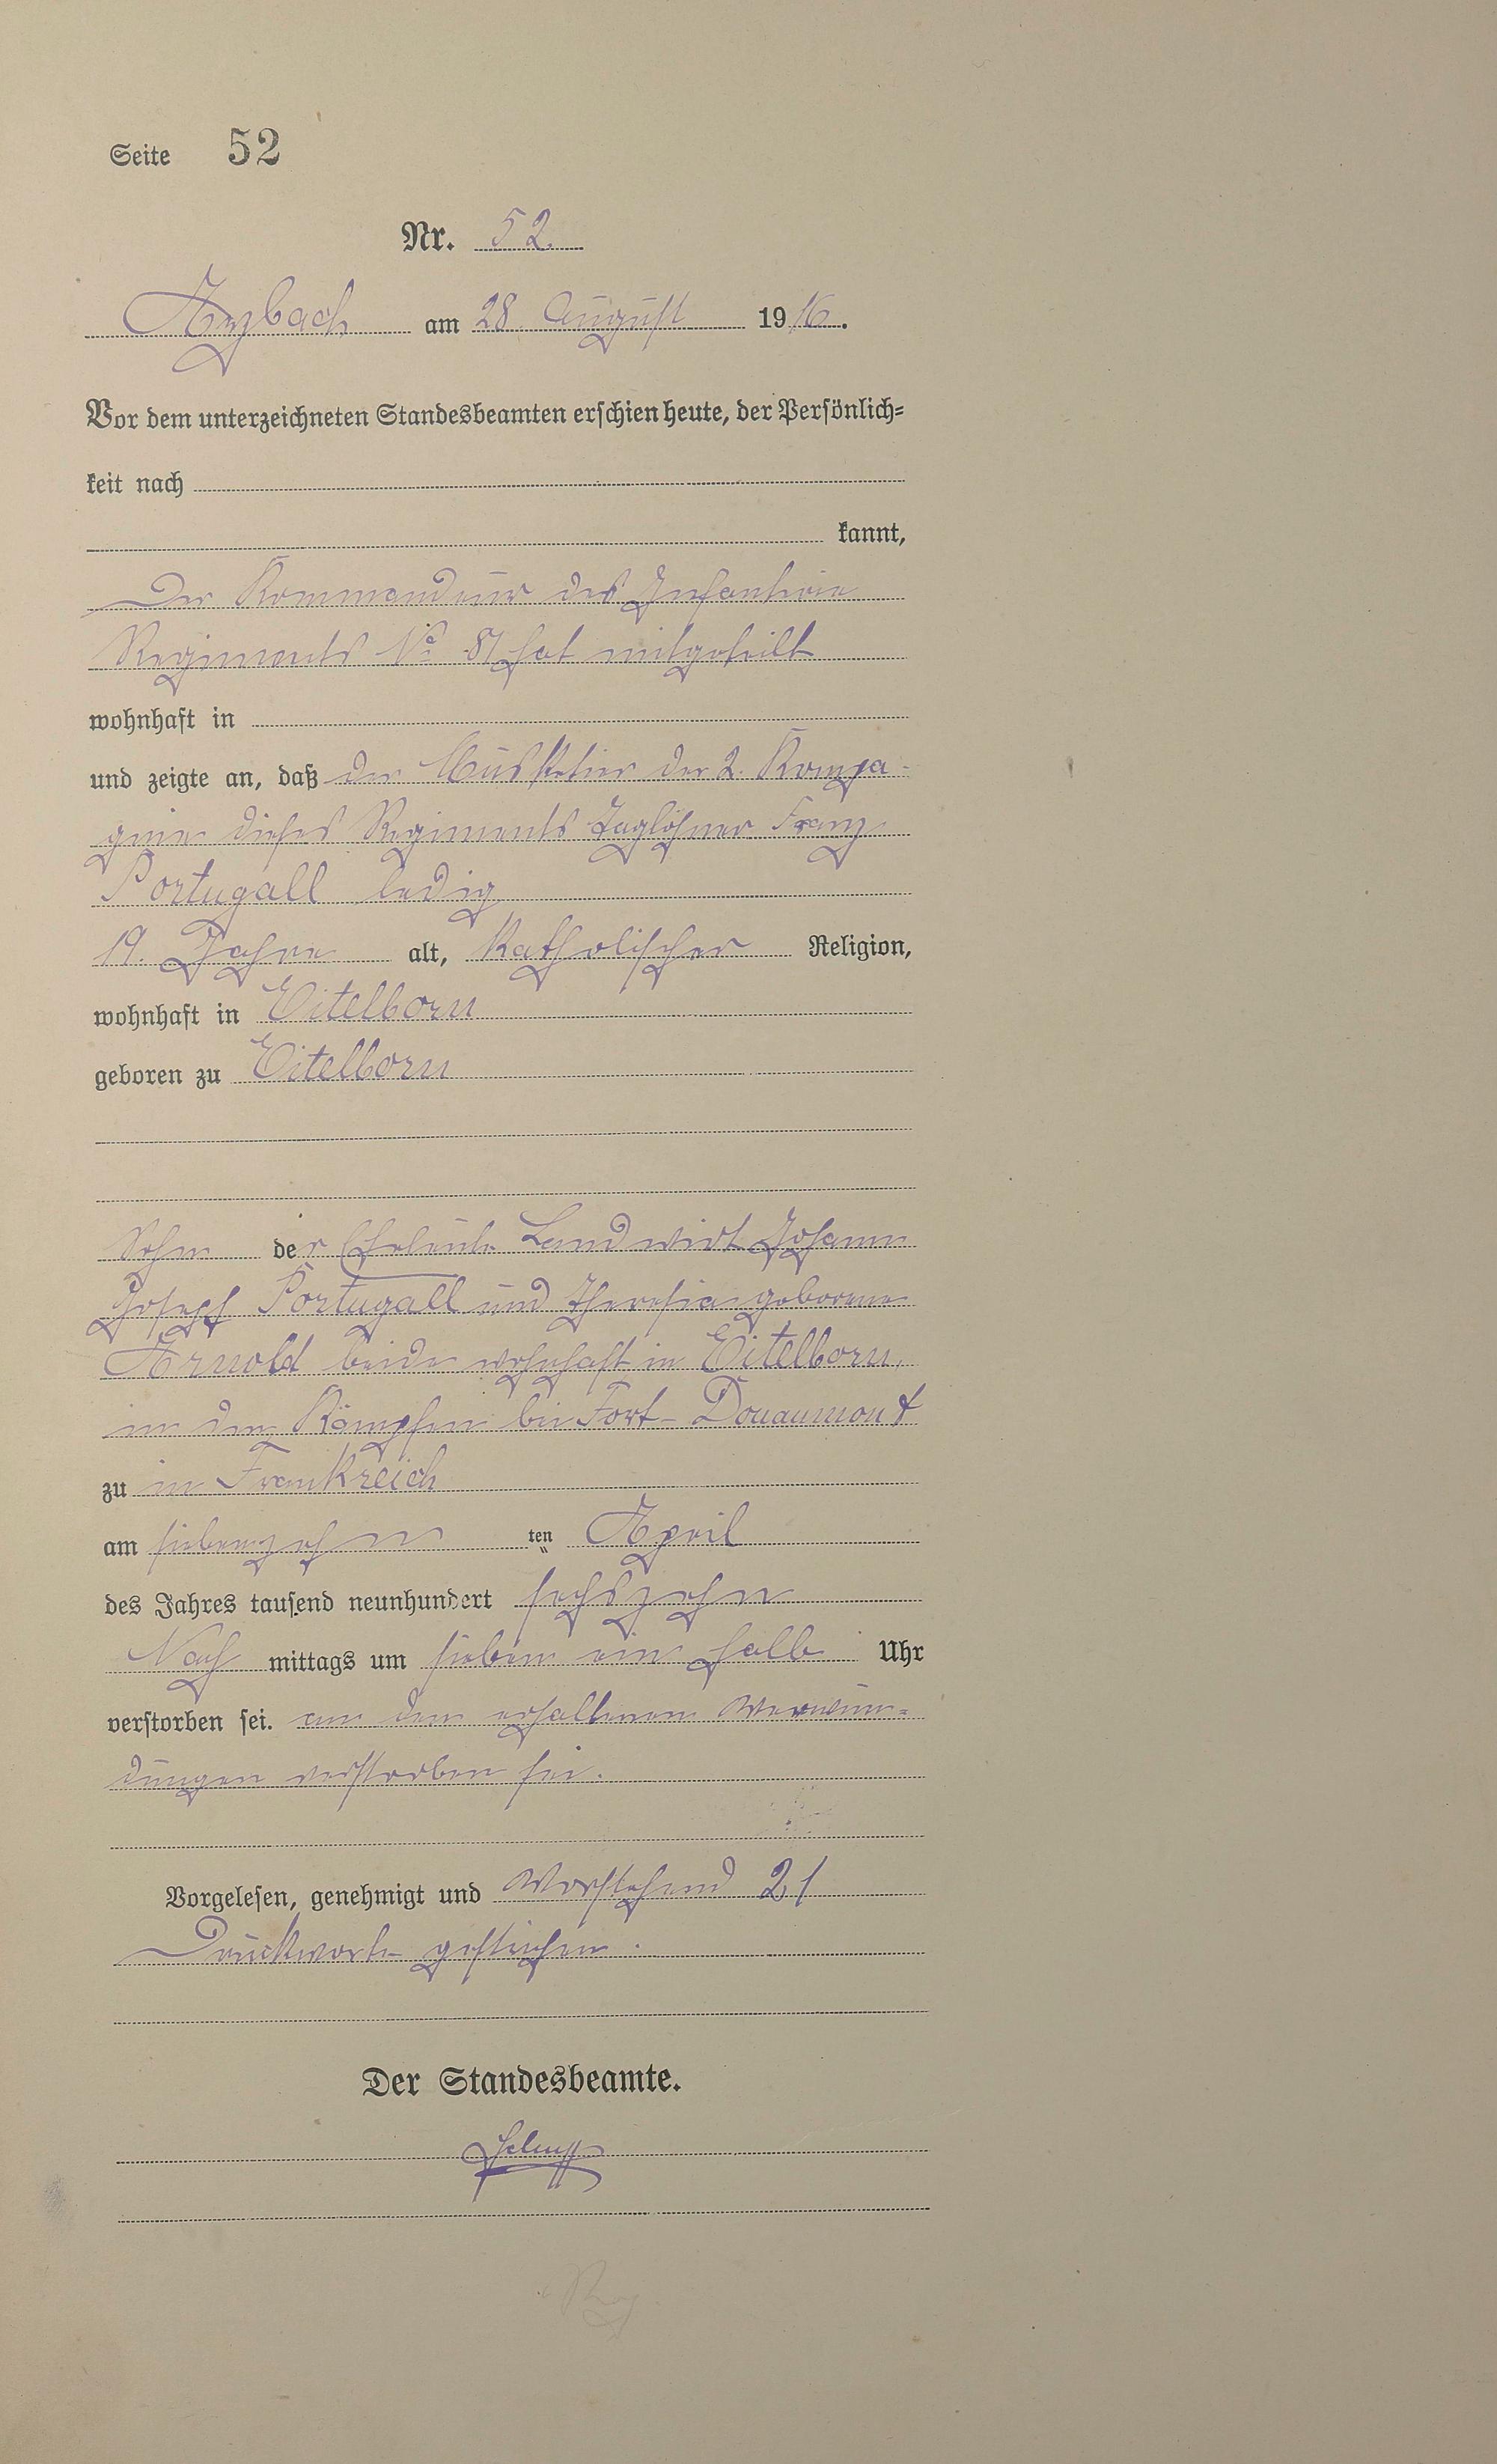 Seite 52
Nr. 52.
Arzbach am 28. August 1916.
Vor dem unterzeichneten Standesbeamten erschien heute, der Persönlich=
keit nach
kannt,
Der Kommandeur des Infanterie
Regiments No 81 hat mitgeteilt
wohnhaft in
und zeigte an, daß der Musketier der 2. Kompa-
gnie dieses Regiments Taglöhner Franz
Portugall ledig
19. Jahre alt, katholischer Religion,
wohnhaft in Eitelborn
geboren zu Eitelborn
Sohn der Eheleute Landwirt Johann
Joseph Portugall und Theresia geborene
Arnold beide wohnhaft in Eitelborn,
in den Kämpfen bei Fort-Douaumont
zu in Frankreich
am siebenzehn ten April
des Jahres tausend neunhundert sechszehn
Nach mittags um sieben ein halb Uhr
verstorben sei. an den erhaltenen Verwun=
dungen verstorben sei.
Vorgelesen, genehmigt und Vorstehend 21
Druckworte gestrichen.
Der Standesbeamte.